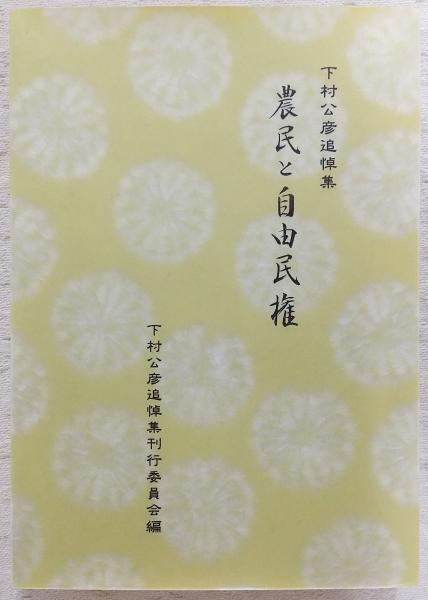 下村公彦追悼集
農民と自由民権
下村公彦追悼集刊行委員会編